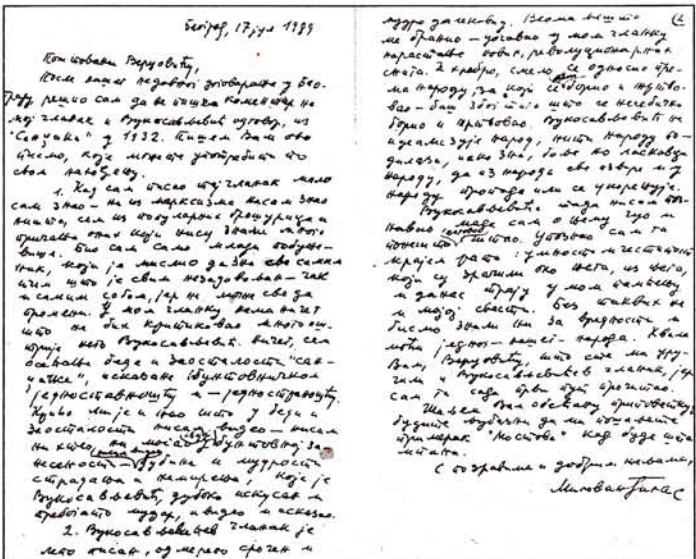 Београд, 17 јул 1989
Поштовани Верцовићу,
После нашег недавног договарања у Бео-
граду, решио сам да не пишем коментар на
мој чланак и Вукосављевићев одговор, из
"Санџака" у 1932. Пишем Вам ово
писмо, које можете употребити по
свом нахођењу.
1. Кад сам писао тај чланак мало
сам знао – ни из марксизма нисам знао
ништа, сем из популарних брошурица и
причања оних који нису знали много
више. Био сам само млади побуње-
ник, који је мислио да зна све самим
тим што је свим незадовољан – чак
и самим собом, јер не може све да
промени. У мом чланку нема ничег
што не бих критиковао много ош-
трије него Вукосављевић. Ничег, сем
осећања беде и заосталости "сан-
џачке", исказане бунтовничком
једноставношћу и – једностраношћу.
није и као што у беди и
заосталости нисам видео – нисам
ни хтео, ни могао у бунтовној за-
несености – дубине и мудрости
страдања и немирења, које је
Вукосављевић, дубоко искусан и
мудар, и видео и исказао.
2. Вукосављевићев чланак је
лепо писан, одмерено срочен и
мудро
ме бранио – уочавао у мом чланку
нарастање нових, револуционарних
снага. И храбро, смело се односио пре-
ма народу, за који се борио и
вао – баш због тога што се несебично
борио и Вукосављевић не
идеализује народ, нити народу по-
дилази, иако зна, боље но ласкавци
народу, да из народа све извире и у
народу пропада или се укорењује.
Вукосављевића тада нисам поз-
навао мада сам о њему чуо и
понешто читао. Упознао сам га
крајем рата: умност и честитост
који су зрачили око њега, из њега,
и данас трају у мом памћењу
и мојој свести. Без таквих не
бисмо знали ни за вредности и
моћи једног – нашег – народа. Хвала
Вам, Верцовићу, што сте ми уру-
чили и Вукосављевићев чланак, јер
сам га сада први пут прочитао.
Шаљем Вам обећану приповетку,
будите љубазни да ми пошаљете
примерак "Мостова" кад буде
штампана.
С поздравима и добрим жељама,
Милован Ђилас